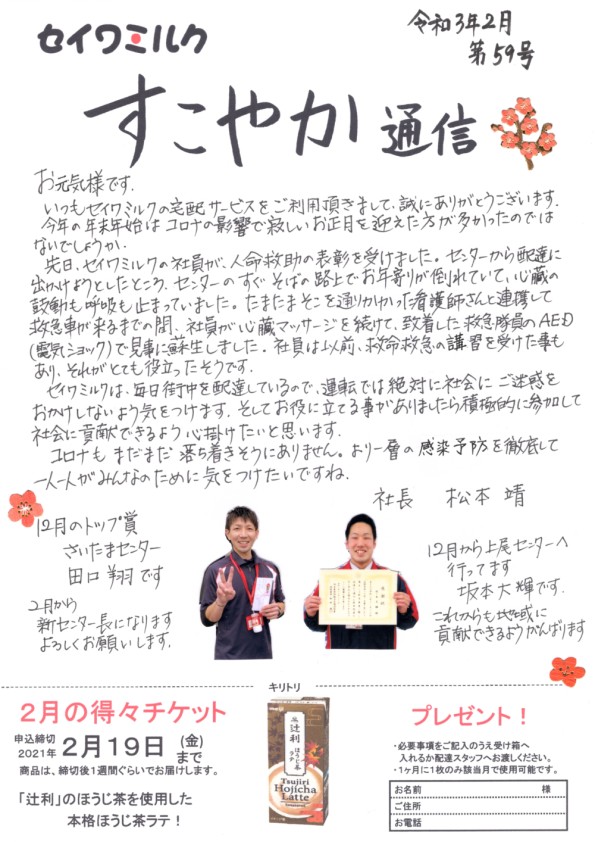 セイワミルク
令和3年2月
第59号
すこやか通信
お元気様です.
いつもセイワミルクの宅配サービスをご利用頂きまして、誠にありがとうございます.
今年の年末年始はコロナの影響で寂しいお正月を迎えた方が多かったのでは
ないでしょうか.
先日、セイワミルクの社員が、人命救助の表彰を受けました。センターから配達に
出かけようとしたところ、センターのすぐそばの路上でお年寄りが倒れていて、心臓の
鼓動も呼吸も止まっていました。たまたまそこを通りかかった看護師さんと連携して
救急車が来るまでの間、社員が心臓マッサージを続けて、致着した救急隊員のAED
(電気ショック)で見事に蘇生しました。社員は以前、救命救急の講習を受けた事も
あり、それがとても役立ったそうです.
セイワミルクは、毎日街中を配達しているので、運転では絶対に社会にご迷惑を
おかけしないよう気をつけます。そしてお役に立てる事がありましたら積極的に参加して
社会に貢献できるよう心掛けたいと思います.
コロナもまだまだ落ち着きそうにありません。より一層の感染予防を徹底して
一人一人がみんなのために気をつけたいですね.
社長 松本 靖
12月のトップ賞
さいたまセンター
田口翔です
2月から
新センター長になります
よろしくお願いします.
12月から上尾センターへ
行ってます
坂本大輝です.
これからも地域に
貢献できるようがんばります
キリトリ
2月の得々チケット
申込締切
2021年 2月19日(金)まで
商品は、締切後1週間ぐらいでお届けします。
「辻利」のほうじ茶を使用した
本格ほうじ茶ラテ！
meiji
辻利
ほうじ茶
ラテ
Tsujiri
Hojicha
Latte
プレゼント！
・必要事項をご記入のうえ受け箱へ
入れるか配達スタッフへお渡しください。
・1ヶ月に1枚のみ該当月で使用可能です。
お名前 様
ご住所
お電話